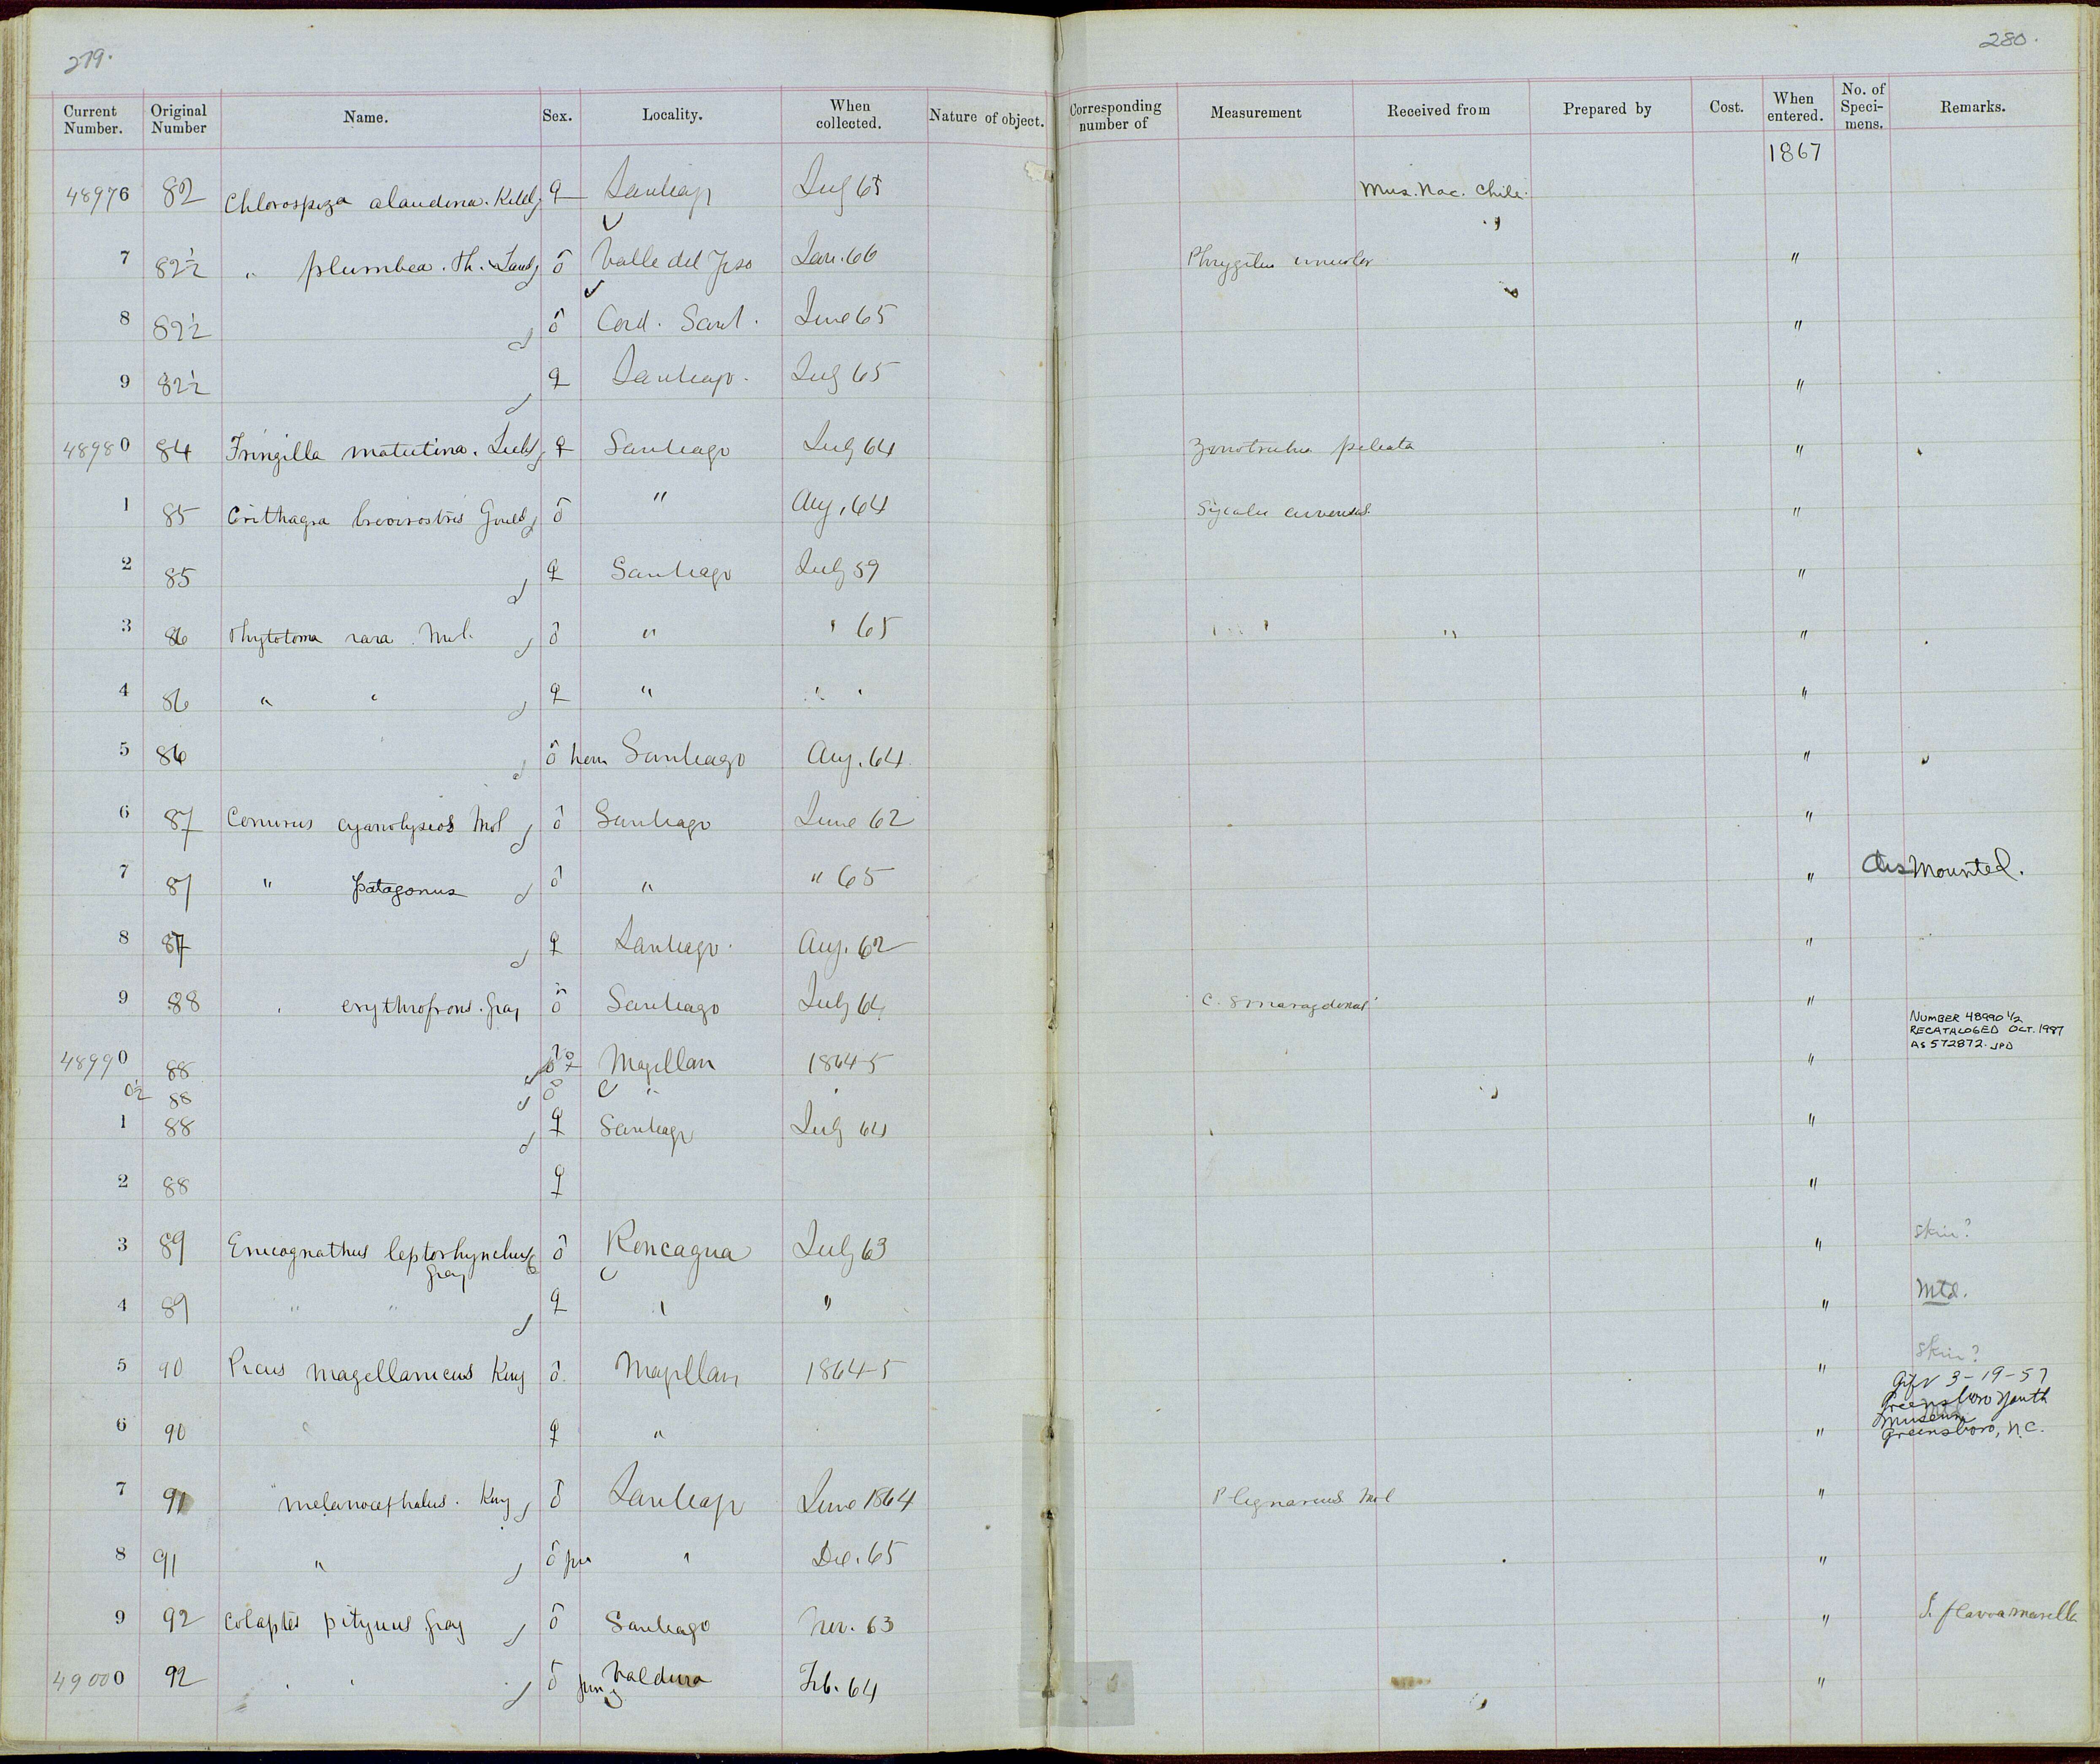 279.
280.
Current Number. Original Number Name. Sex. Locality. When collected. Nature of object. Corresponding number of Measurement Received from Prepared by Cost. When entered. No. of Speci-mens. Remarks.
1867
48976 82 Chlorospiza alaudina. Kittl ♀ Santiago July 65 Mus. Nac. Chile.
7 82½ " plumbea. Ph. & Landb ♂ Valle del Yeso Jan. 66 Phrygilus unicolor "
8 82½ ♂ Cord. Sant. June 65 "
9 82½ ♀ Santiago. July 65 "
48980 84 Fringilla matutina. Licht ♀ Santiago July 64 Zonotrichia pileata "
1 85 Crithagra brevirostris Gould ♂ " Aug. 64 Sycalis arvensis. "
2 85 ♀ Santiago July 59 "
3 86 Phytotoma rara Mol. ♂ " " 65 " "
4 86 " " ♀ " " "
5 86 ♂ horn Santiago Aug. 64 "
6 87 Conurus cyanolyseos Mol ♂ Santiago June 62 "
7 87 " patagonus ♂ " " 65 " dis Mounted.
8 87 ♀ Santiago. Aug. 62 "
9 88 erythrofrons. Gray ♂ Santiago July 64 C. smaragdinus "
NUMBER 48990 1/2
RECATALOGED OCT. 1987
AS 572872. JPD
48990 88 Magellan 1864-5 "
0½ 88 ♂ "
1 88 ♀ Santiago July 64 "
2 88 ♀ "
3 89 Enicognathus leptorhynchus ♂ Rencagua July 63 " Skin?
Gray
4 89 " " ♀ " " " Mtd.
5 90 Picus magellanicus King ♂. Magellan 1864-5 " Skin?
Gift 3-19-57
Greensboro Youth
Museum
Greensboro, N.C.
6 90 ♀ " "
7 91 melanocephalus. King ♂ Santiago June 1864 P lignarius Mol "
8 91 " ♂ juv " Dec. 65 "
9 92 Colaptes pitiguus Gray ♂ Santiago Nov. 63 "
49000 92 ♂ jun Valdivia Feb. 64 "